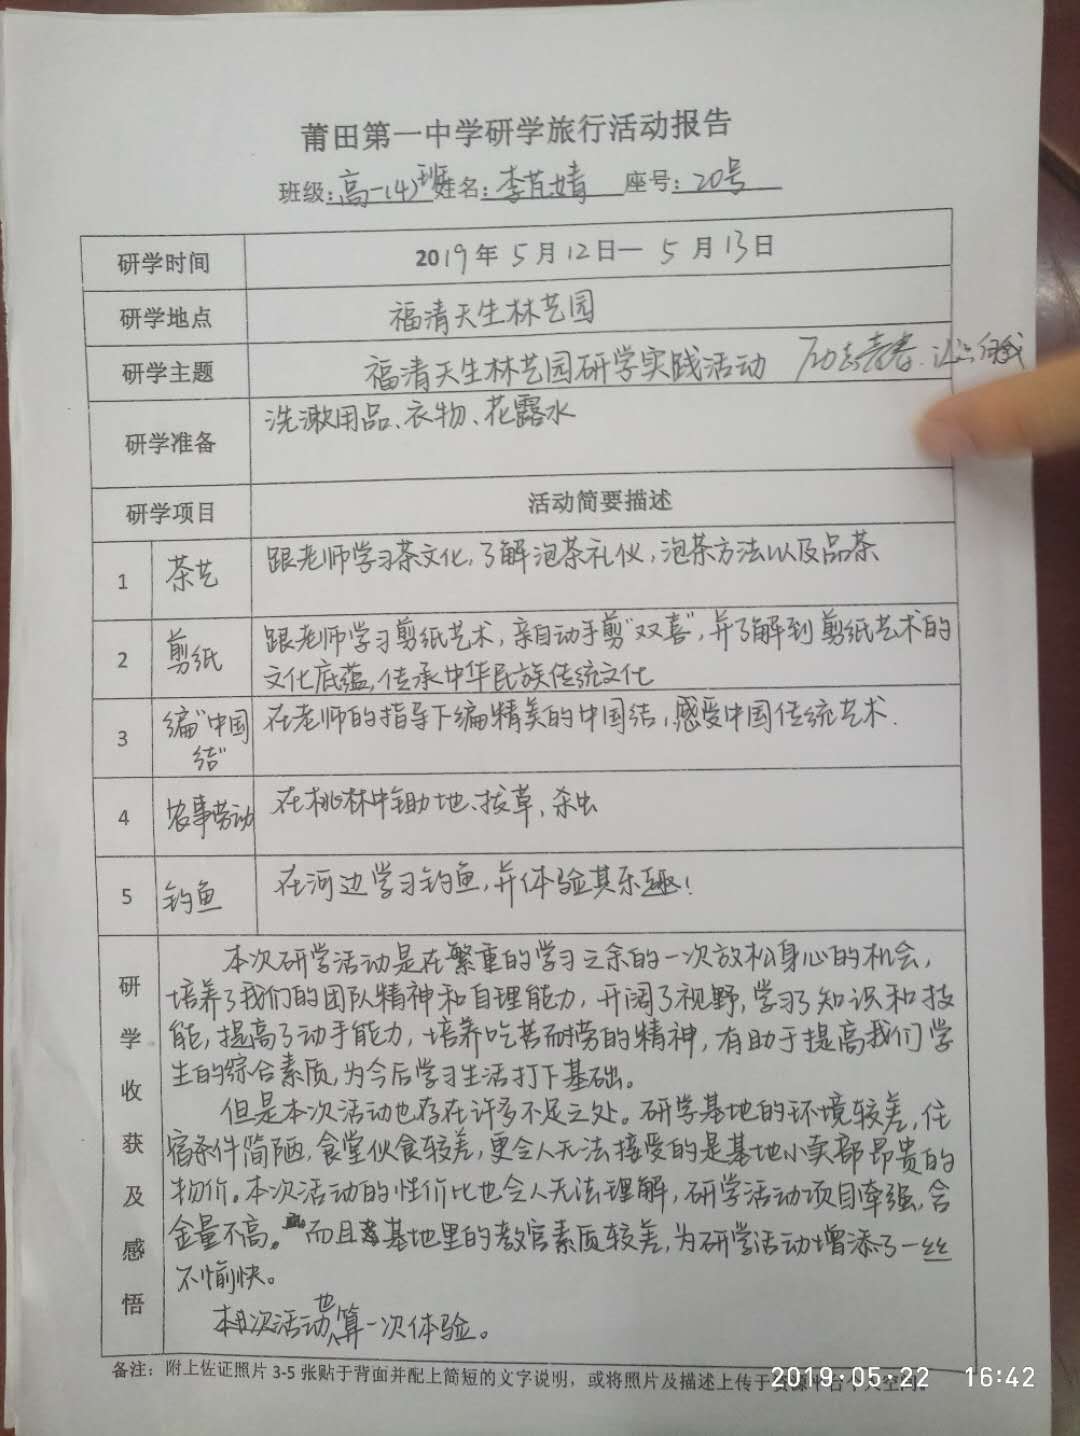 莆田第一中学研学旅行活动报告
班级:高一(4)班姓名:李芃婧 座号:20号
研学时间 2019年5月12日—5月13日
研学地点 福清天生林艺园
研学主题 福清天生林艺园研学实践活动 青春
研学准备 洗漱用品、衣物、花露水
研学项目 活动简要描述
1 茶艺 跟老师学习茶文化,了解泡茶礼仪,泡茶方法以及品茶
2 剪纸 跟老师学习剪纸艺术,亲自动手剪“双喜”,并了解到剪纸艺术的
文化底蕴,传承中华民族传统文化
3 编“中国
结” 在老师的指导下编精美的中国结,感受中国传统艺术.
4 农事劳动 在桃林中锄地、拔草、杀虫
5 钓鱼 在河边学习钓鱼,并体验其乐趣!
研学收获及感悟
本次研学活动是在繁重的学习之余的一次放松身心的机会,
培养了我们的团队精神和自理能力,开阔了视野,学习了知识和技
能,提高了动手能力,培养吃苦耐劳的精神,有助于提高我们学
生的综合素质,为今后学习生活打下基础。
但是本次活动也存在许多不足之处。研学基地的环境较差,住
宿条件简陋,食堂伙食较差,更令人无法接受的是基地小卖部昂贵的
物价。本次活动的性价比也令人无法理解,研学活动项目牵强,含
金量不高。而且基地里的教官素质较差,为研学活动增添了一丝
不愉快。
本次活动也算一次体验。
备注:附上佐证照片3-5张贴于背面并配上简短的文字说明,或将照片及描述上传于资源平台个人空间。
2019.05.22 16:42